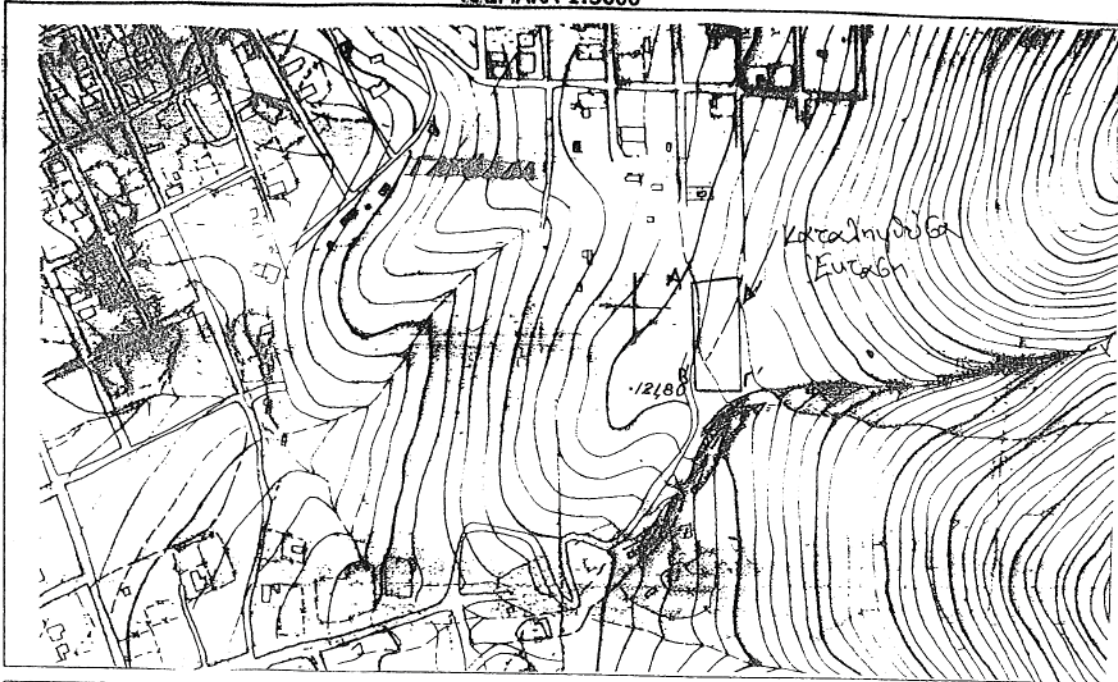 1:5000
Καταληφθείσα
Έκταση
Α
Δ
Β
Γ'
·121,80